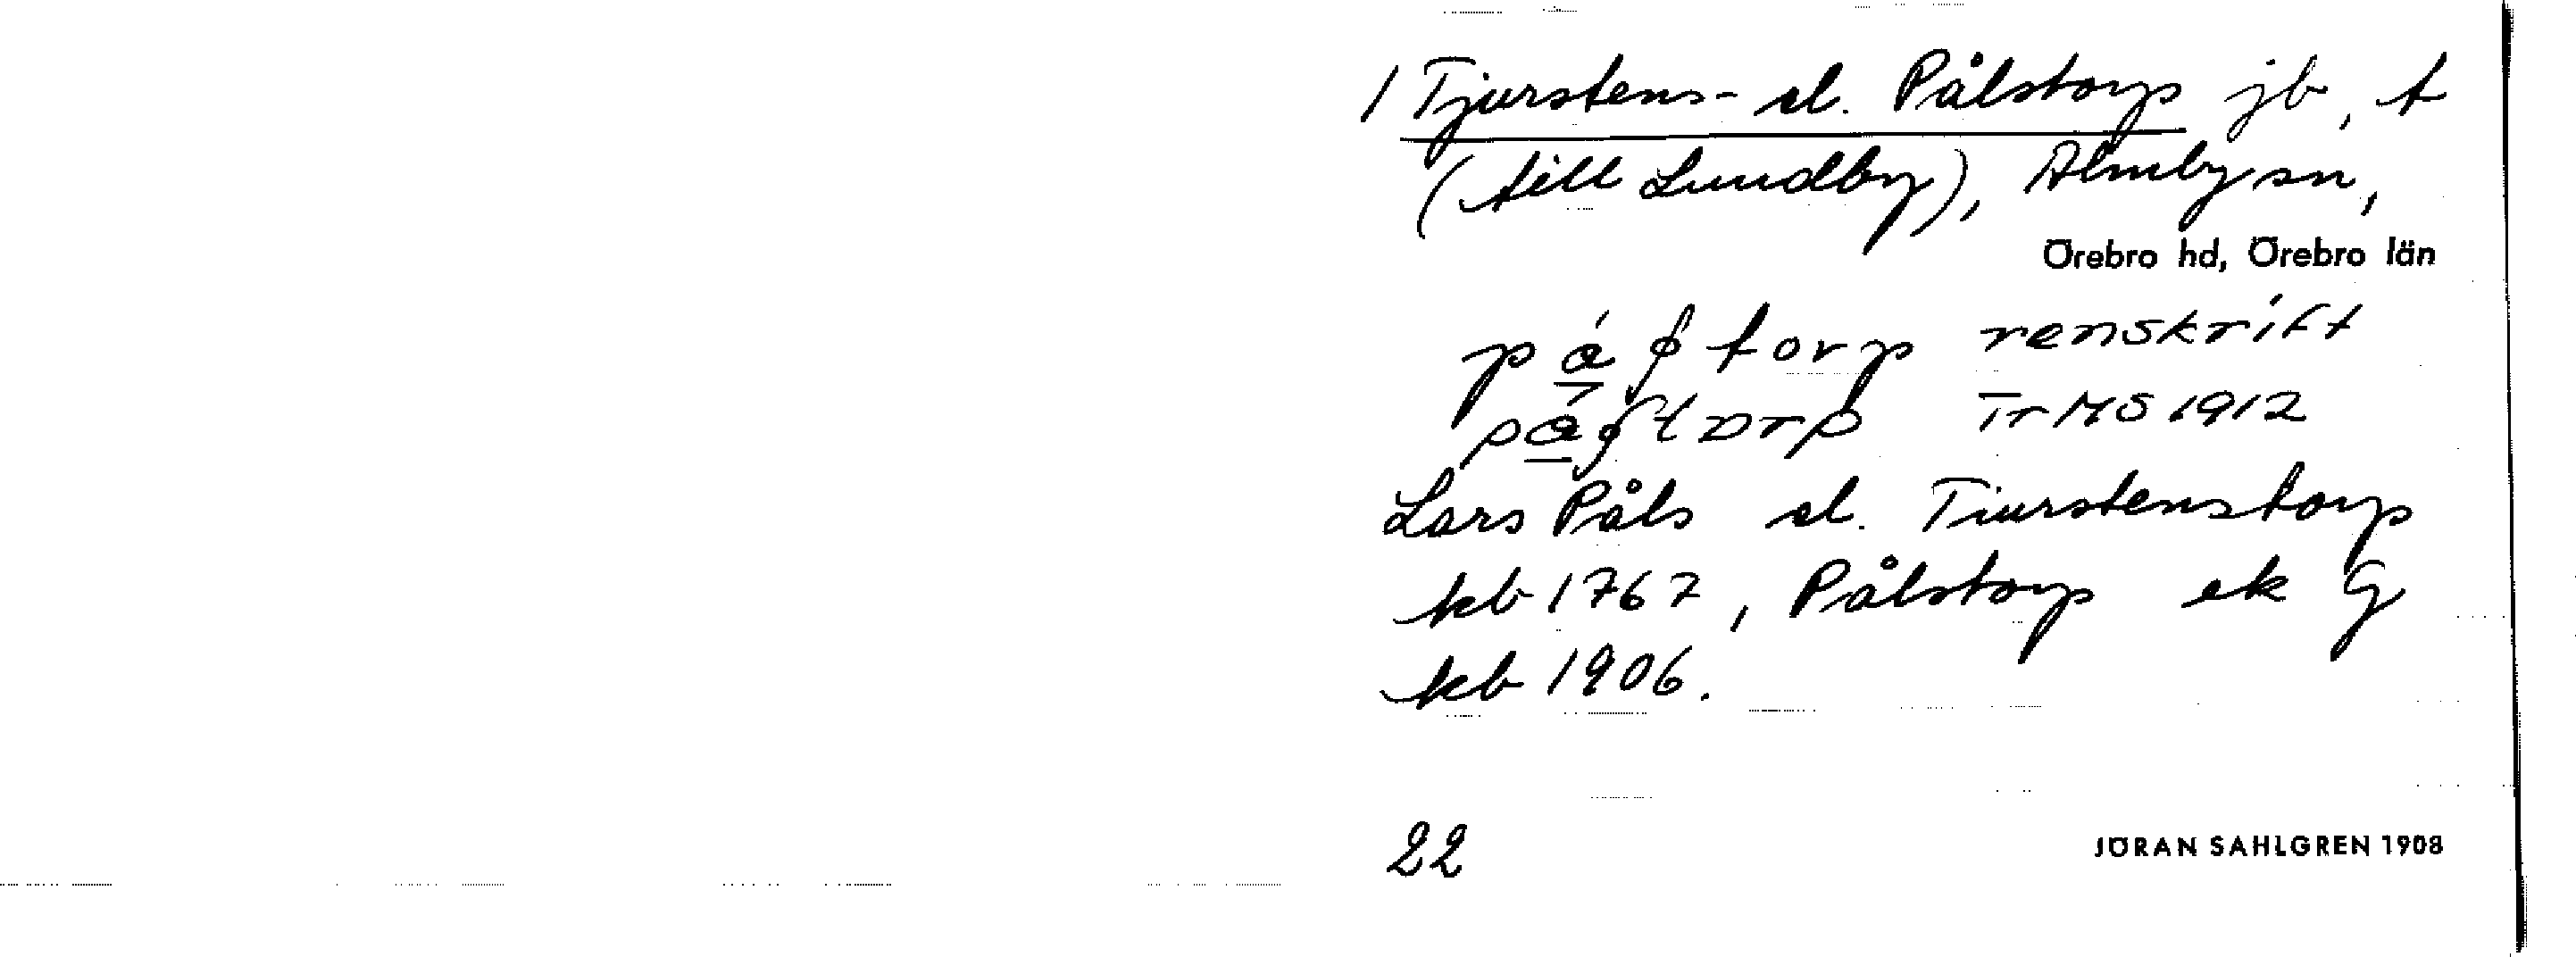 1 Tjurstens- el. Pålstorp jb, t
(till Lundby), Almby sn,
Örebro hd, Örebro län
renskrift
Tr MS 1912
Lars Påls el. Tiurstenstorp
kb 1767, Pålstorp ek G
kb 1906.
22
JÖRAN SAHLGREN 1908